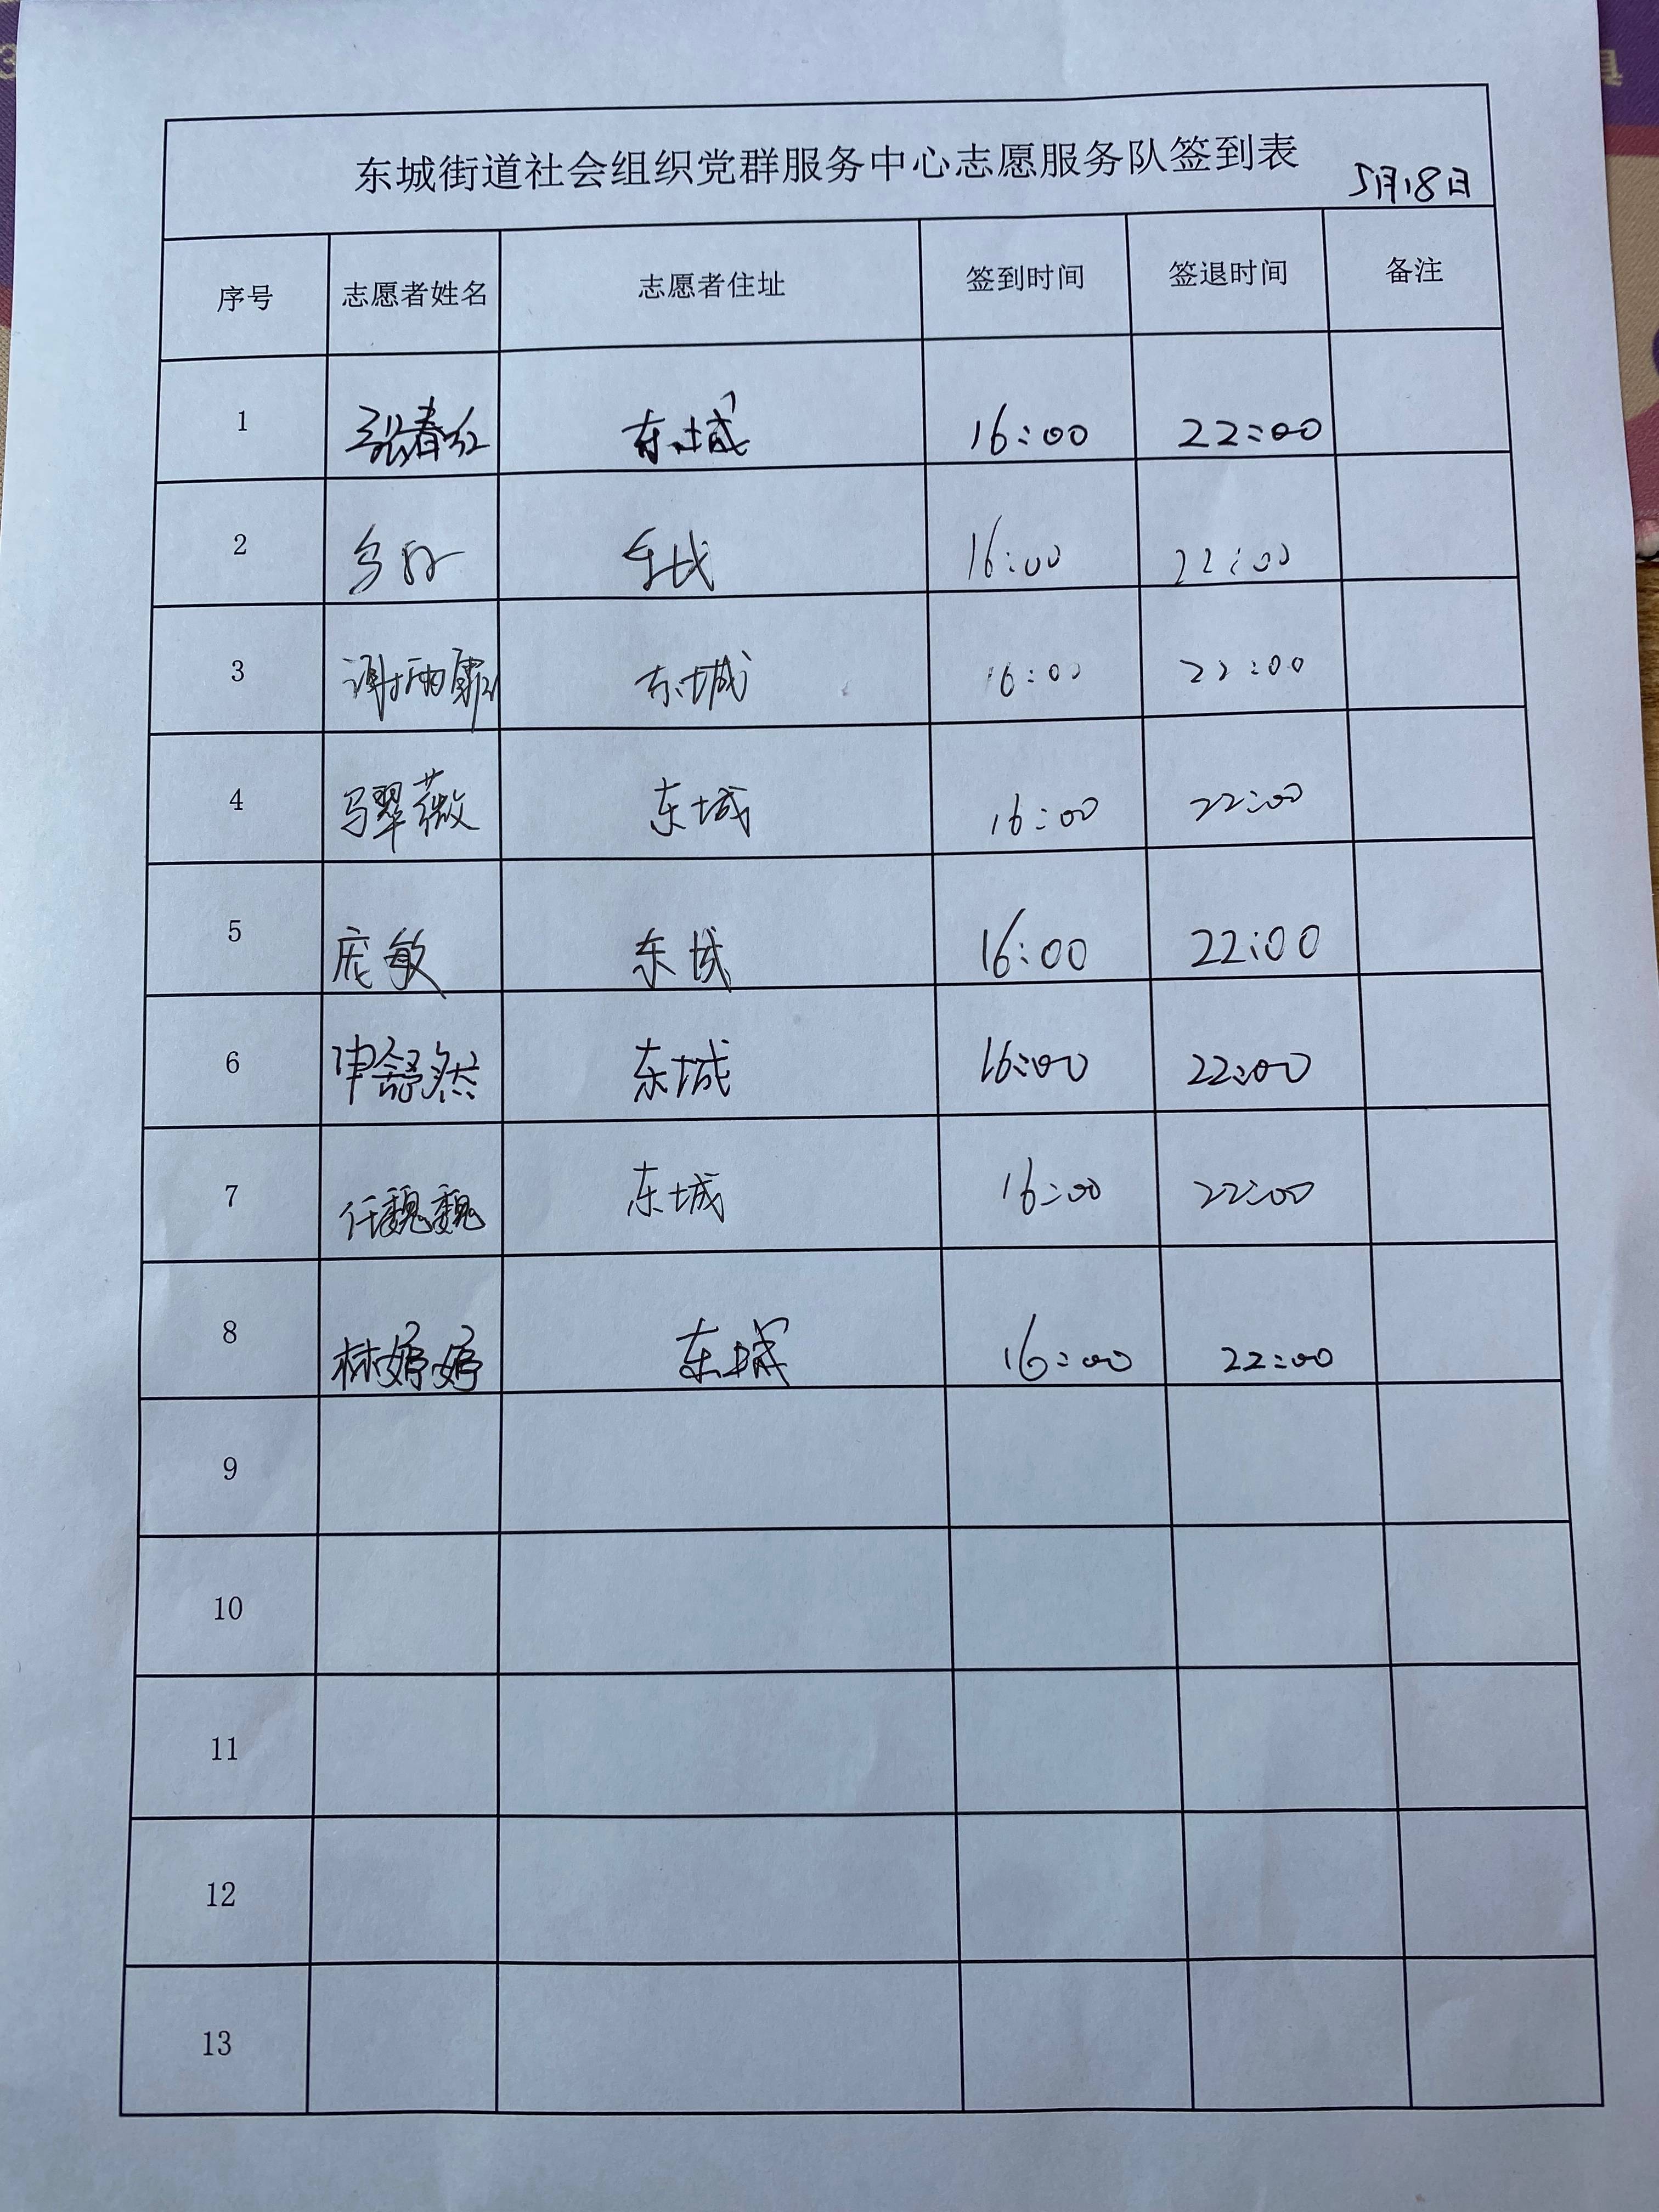 东城街道社会组织党群服务中心志愿服务队签到表
5月18日
序号 志愿者姓名 志愿者住址 签到时间 签退时间 备注
1 张春红 东城 16:00 22:00
2 东城 16:00 22:00
3 谢雨霏 东城 16:00 22:00
4 马翠薇 东城 16:00 22:00
5 庞敏 东城 16:00 22:00
6 申舒然 东城 16:00 22:00
7 任魏魏 东城 16:00 22:00
8 林婷婷 东城 16:00 22:00
9
10
11
12
13